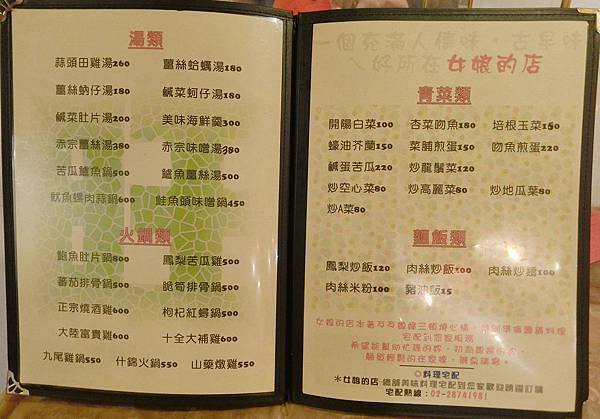 湯類
蒜頭田雞湯260 薑絲蛤蠣湯180
薑絲蚋仔湯180 鹹菜蚵仔湯180
鹹菜肚片湯200 美味海鮮羹300
赤宗薑絲湯380 赤宗味噌湯380
苦瓜鱸魚鍋500 鱸魚薑絲湯500
魷魚螺肉蒜鍋600 鮭魚頭味噌鍋450
火鍋類
鮑魚肚片鍋800 鳳梨苦瓜雞500
蕃茄排骨鍋500 筍排骨鍋500
正宗燒酒雞600 枸杞紅蟳鍋500
大陸富貴雞600 十全大補雞600
九尾雞鍋550 什錦火鍋550 山藥燉雞550
一個充滿人情味‧古早味
ㄟ好所在女娘的店
青菜類
開陽白菜100 杏菜吻魚180 培根玉菜150
蠔油芥蘭150 菜脯煎蛋150 吻魚煎蛋220
鹹蛋苦瓜220 炒龍鬚菜120
炒空心菜80 炒高麗菜80 炒地瓜葉80
炒A菜80
麵飯類
鳳梨炒飯120 肉絲炒飯100 肉絲炒麵100
肉絲米粉100 豬油飯15
宅配到您家服務
料理宅配
＊女娘的店-
宅配熱線：02-28741981